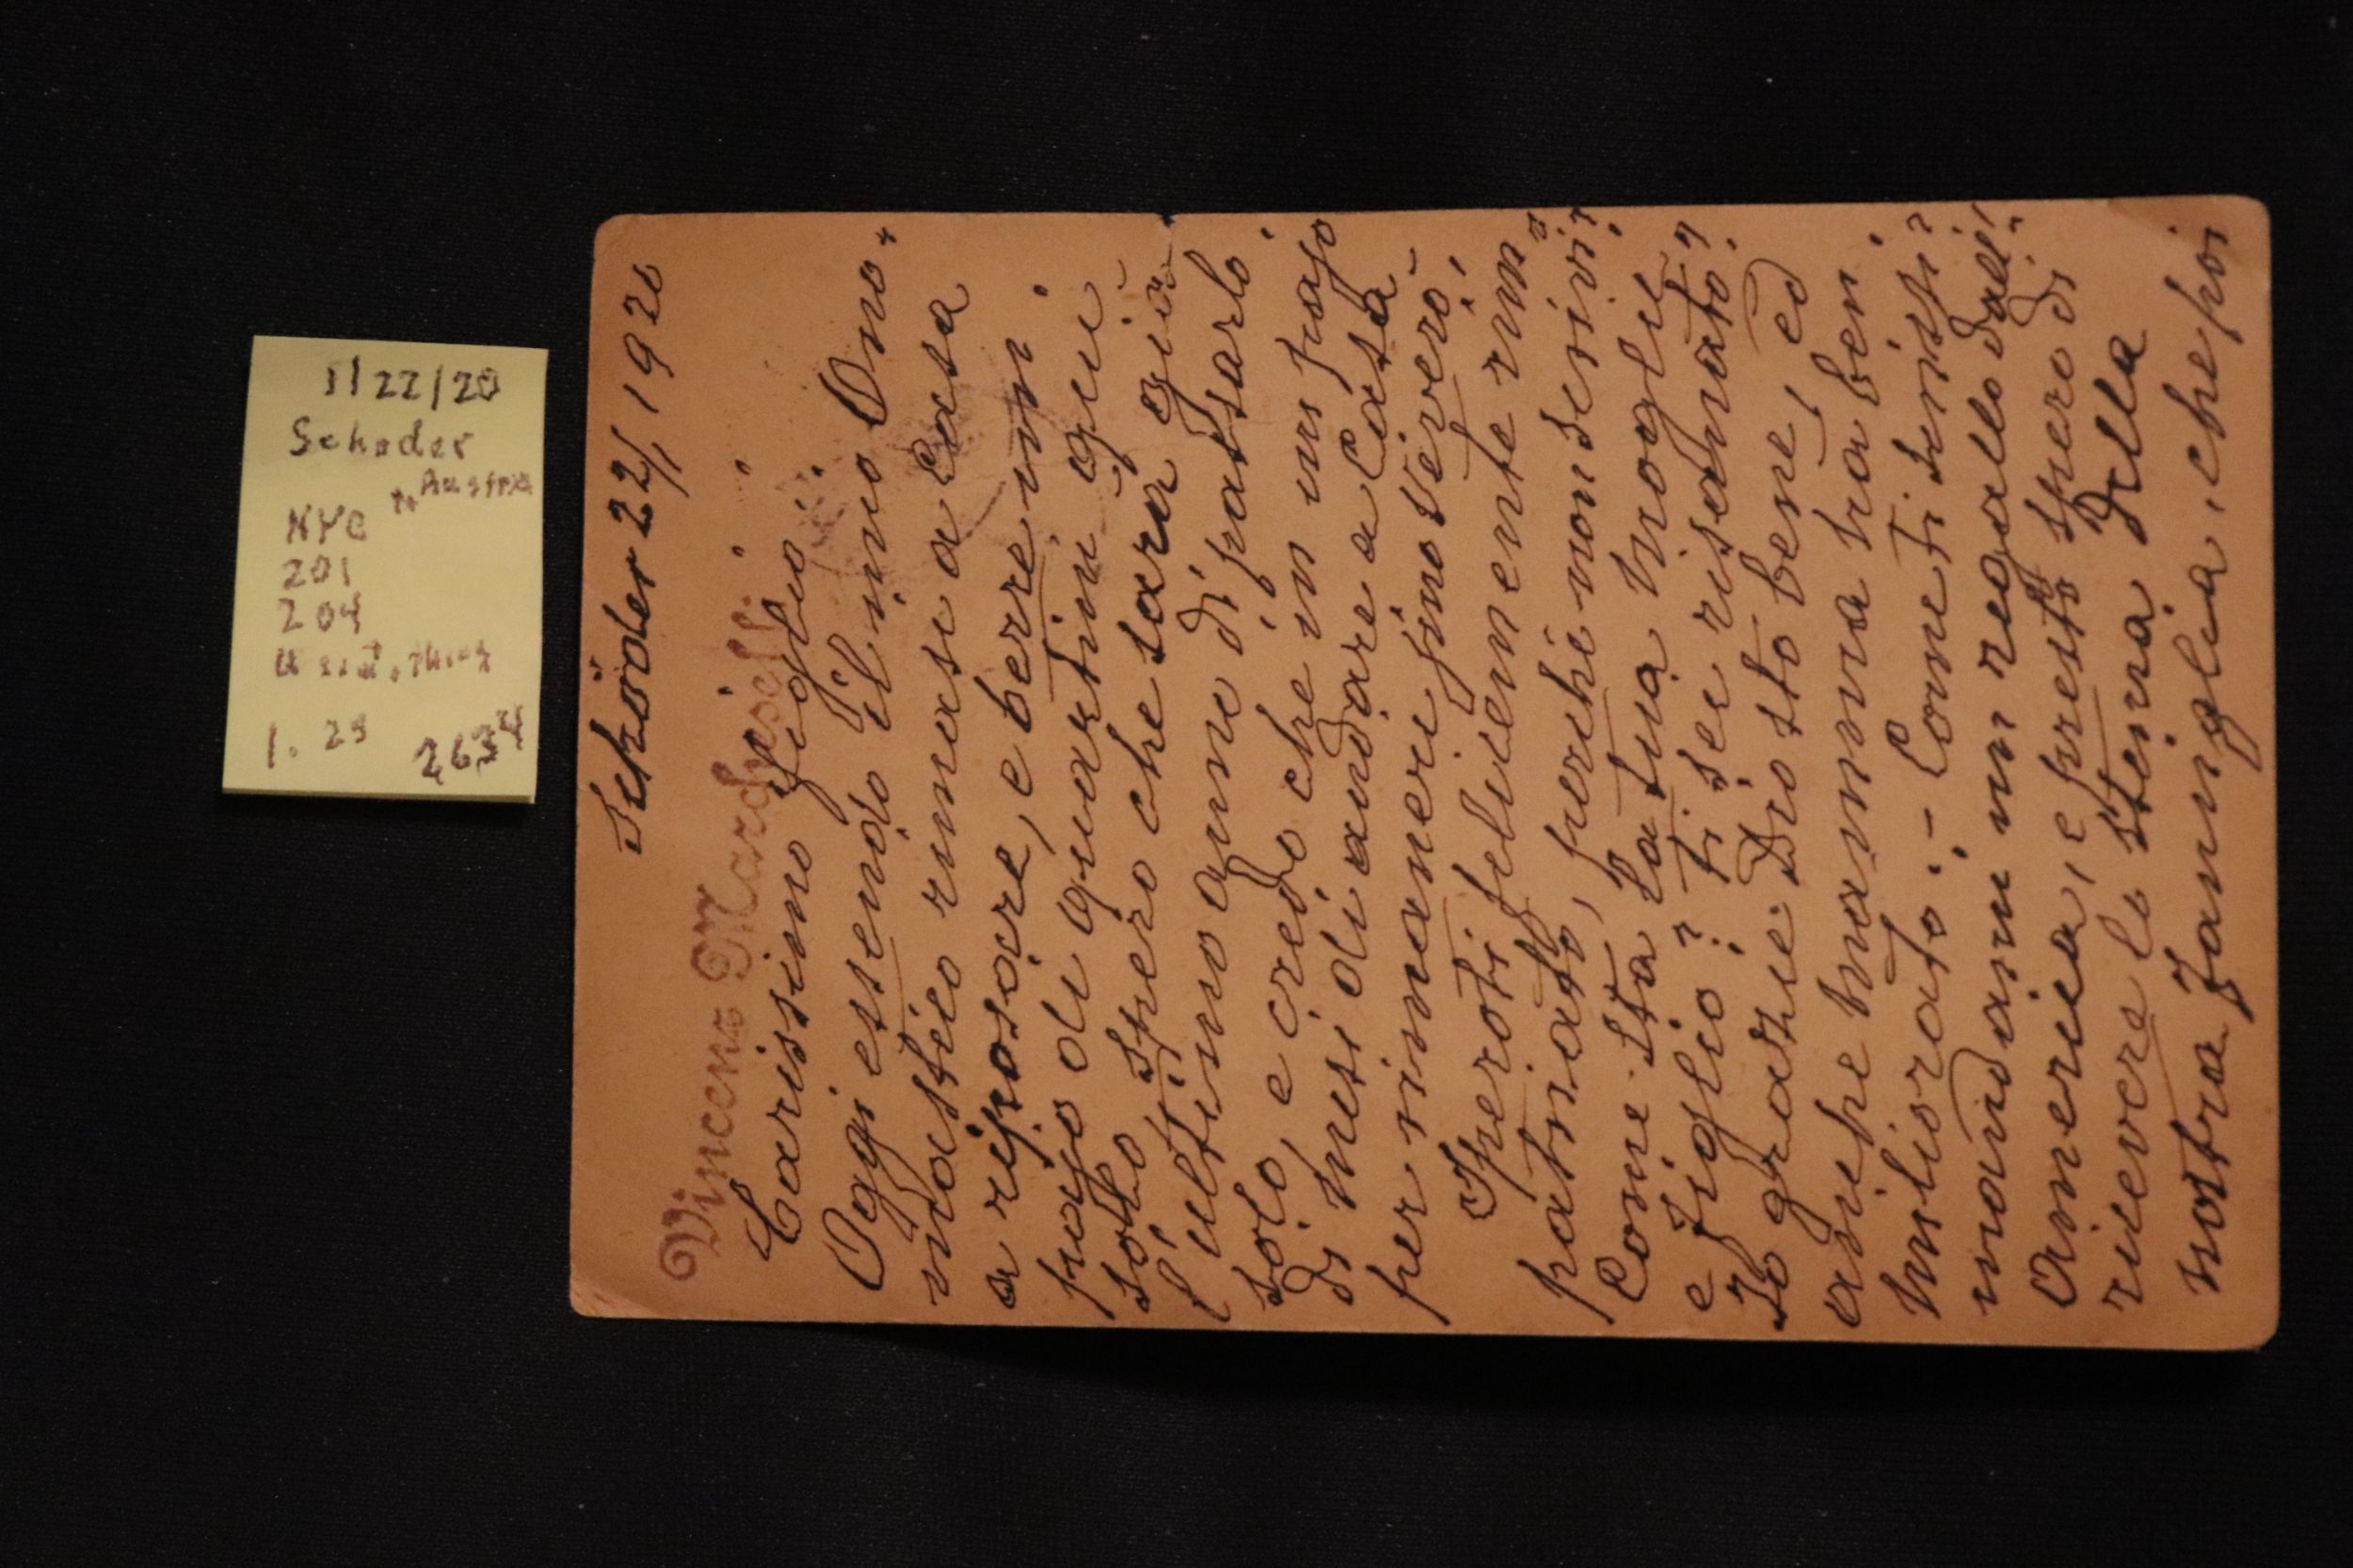 1/22/20
Schoder
to Austria
NYC
201
204
1.25
263
Schöder 22/1 1920
Vincenz Marcheselli
Carissimo figlio.
Oggi essendo il mio Ono-
mastico rimasi a Casa
a riposare, e bere un
pajo di quartini qui
solo, spero che sarà già
l'ultimo anno di passarlo
solo, e credo che in un pajo
di mesi di andare a Casa
per rimaneri fino viverò!
Speroti felicemente rim=
patriato, perché non scrivi?
Come sta la tua moglie
e figlio? ti sei risanato?
Io grazie Dio sto bene, ed
anche mamma va ben
miliorato. – Come ti tensti?
mandami un regallo dall'
America, e presto spero di
ricevere lo stema della
nostra famiglia, che poi